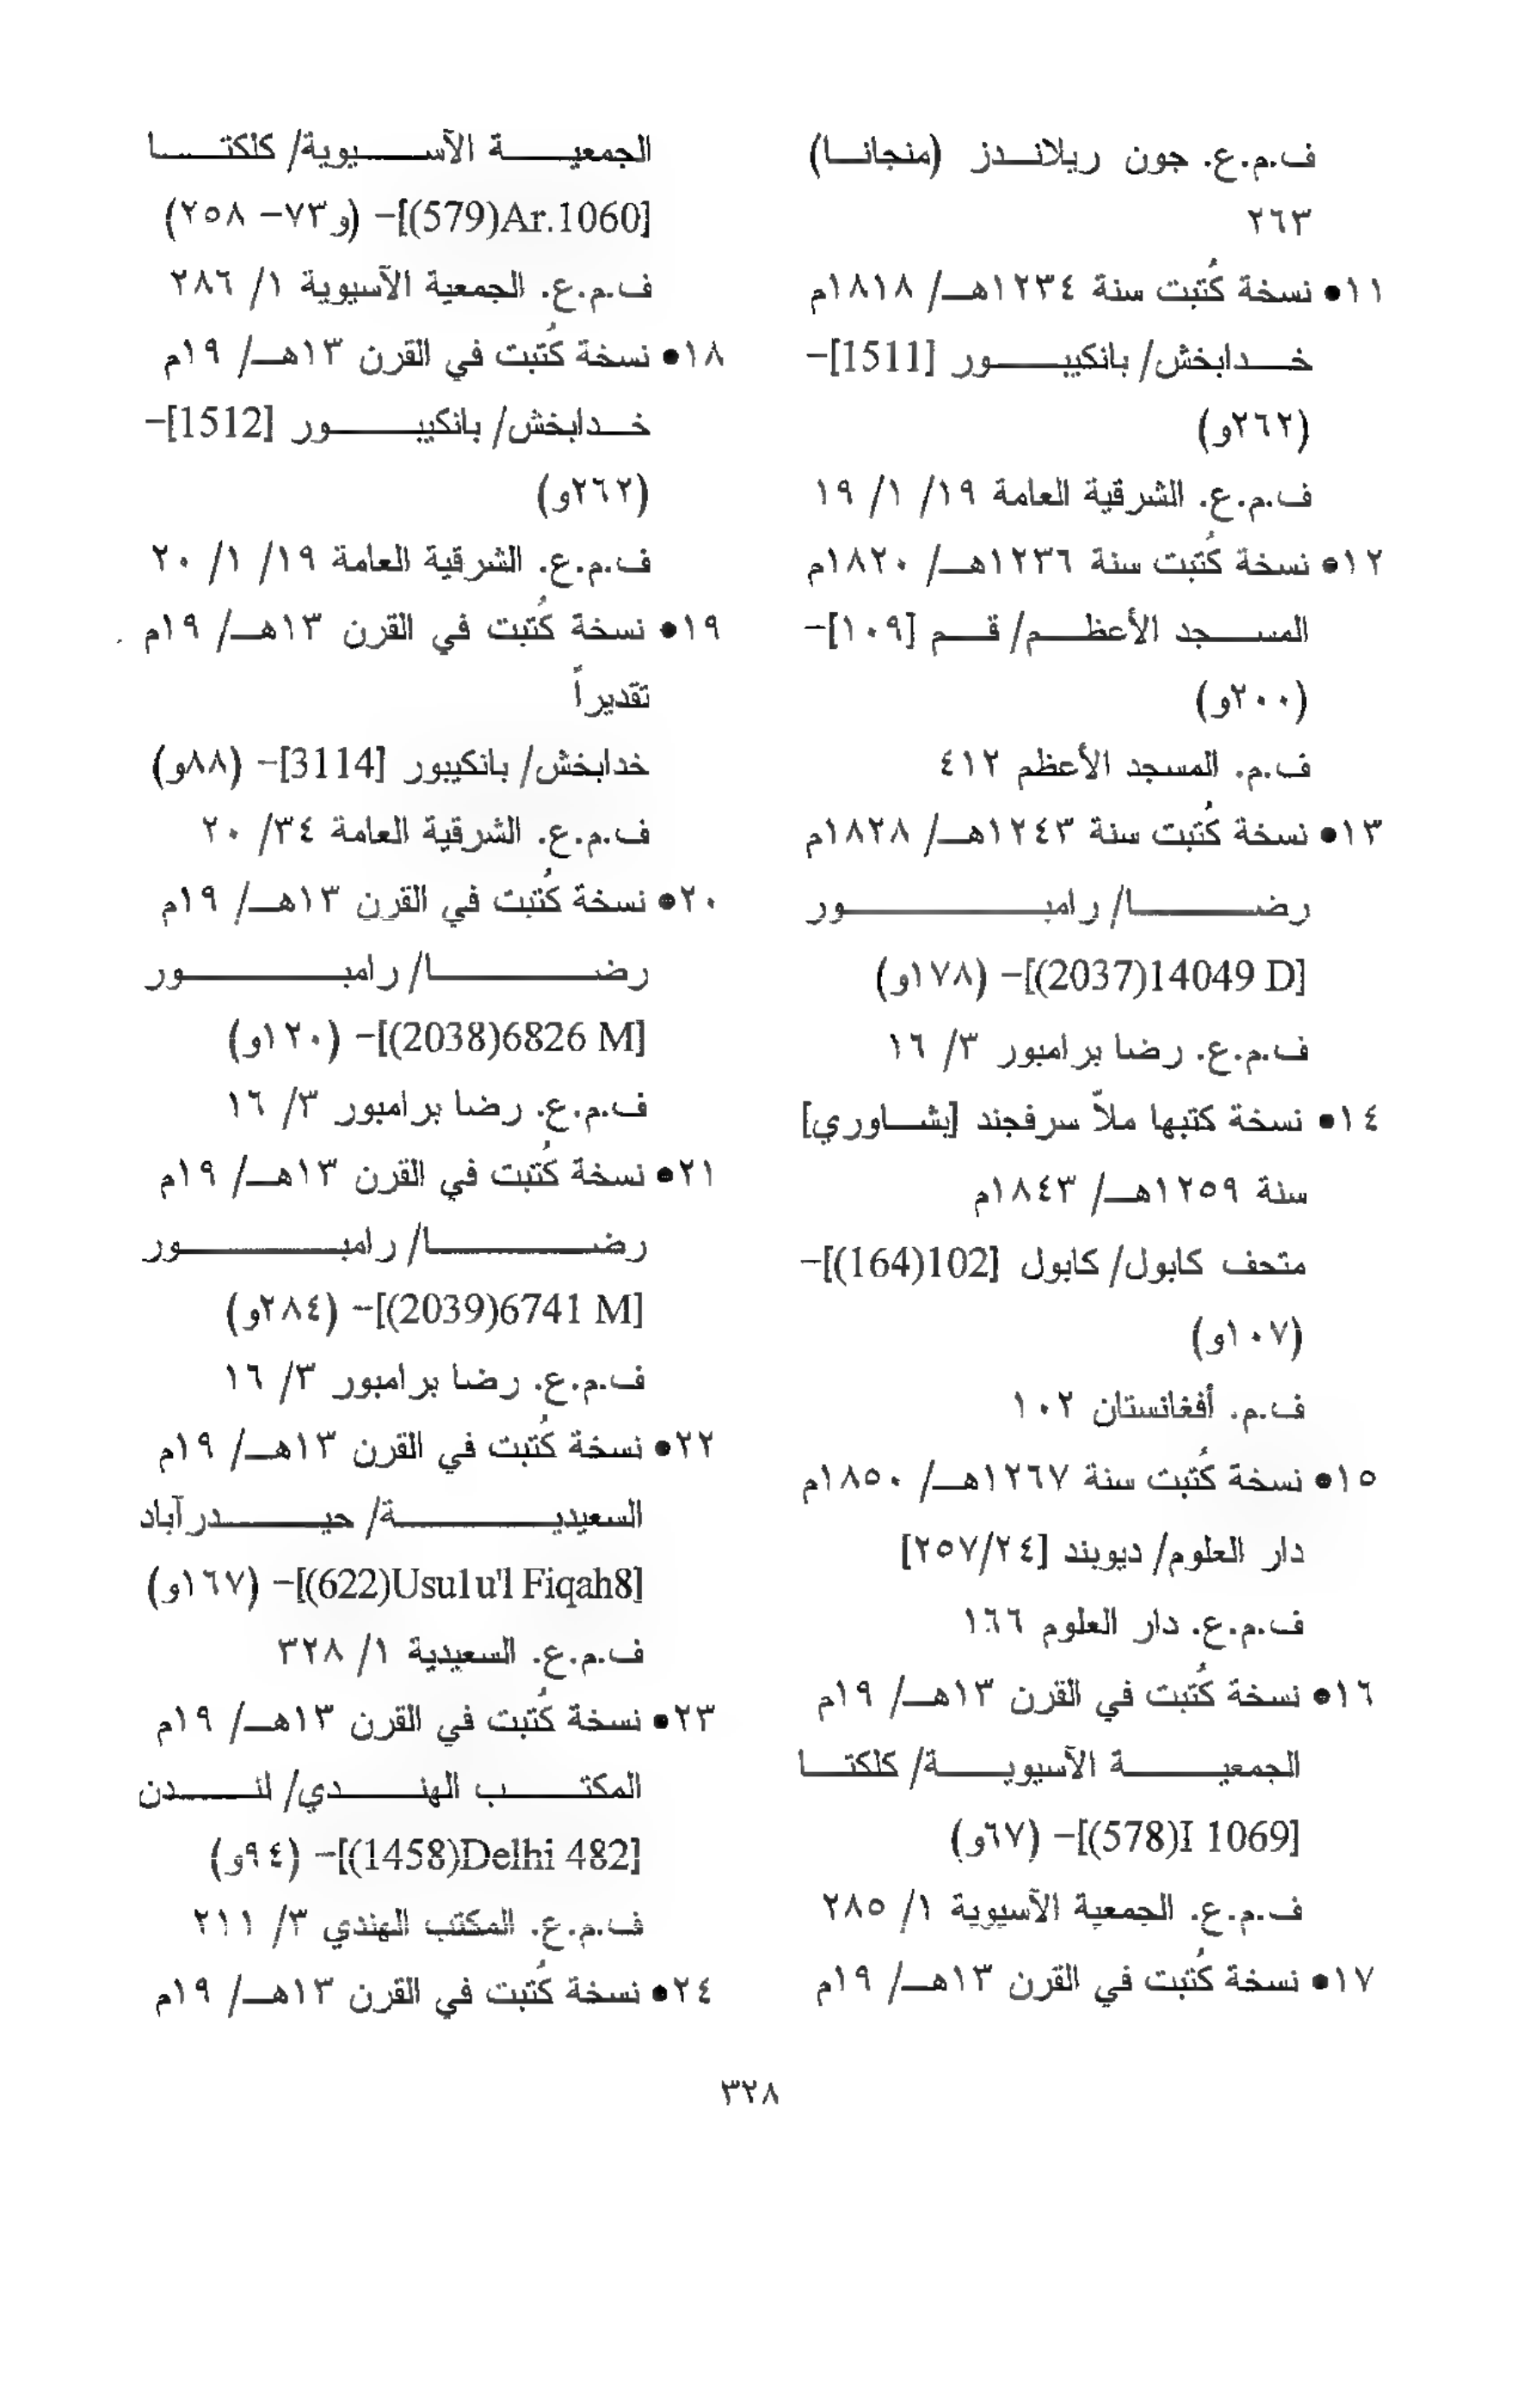 ف.م.ع. جون ريلاندز (منجانا)
٢٦٣
١١• نسخة كُتبت سنة ١٢٣٤هـ/ ١٨١٨م
خدابخش/ بانكيبور [1511]-
(٢٦٢و)
ف.م.ع. الشرقية العامة ١٩/ ١/ ١٩
١٢• نسخة كُتبت سنة ١٢٣٦هـ/ ١٨٢٠م
المسجد الأعظم/ قم [١٠٩]-
(٢٠٠و)
ف.م. المسجد الأعظم ٤١٢
١٣• نسخة كُتبت سنة ١٢٤٣هـ/ ١٨٢٨م
رضا/ رامبور
[14049 D(2037)]- (١٧٨و)
ف.م.ع. رضا برامبور ٣/ ١٦
١٤• نسخة كتبها ملاّ سرفجند [بشاوري]
سنة ١٢٥٩هـ/ ١٨٤٣م
متحف كابول/ كابول [102(164)]-
(١٠٧و)
ف.م. أفغانستان ١٠٢
١٥• نسخة كُتبت سنة ١٢٦٧هـ/ ١٨٥٠م
دار العلوم/ ديوبند [٢٥٧/٢٤]
ف.م.ع. دار العلوم ١٦٦
١٦• نسخة كُتبت في القرن ١٣هـ/ ١٩م
الجمعية الآسيوية/ كلكتا
[I 1069(578)]- (٦٧و)
ف.م.ع. الجمعية الآسيوية ١/ ٢٨٥
١٧• نسخة كُتبت في القرن ١٣هـ/ ١٩م
الجمعية الآسيوية/ كلكتا
[Ar.1060(579)]- (و٧٣- ٢٥٨)
ف.م.ع. الجمعية الآسيوية ١/ ٢٨٦
١٨• نسخة كُتبت في القرن ١٣هـ/ ١٩م
خدابخش/ بانكيبور [1512]-
(٢٦٢و)
ف.م.ع. الشرقية العامة ١٩/ ١/ ٢٠
١٩• نسخة كُتبت في القرن ١٣هـ/ ١٩م
تقديراً
خدابخش/ بانكيبور [3114]- (٨٨و)
ف.م.ع. الشرقية العامة ٣٤/ ٢٠
٢٠• نسخة كُتبت في القرن ١٣هـ/ ١٩م
رضا/ رامبور
[6826 M(2038)]- (١٢٠و)
ف.م.ع. رضا برامبور ٣/ ١٦
٢١• نسخة كُتبت في القرن ١٣هـ/ ١٩م
رضا/ رامبور
[6741 M(2039)]- (٢٨٤و)
ف.م.ع. رضا برامبور ٣/ ١٦
٢٢• نسخة كُتبت في القرن ١٣هـ/ ١٩م
السعيدية/ حيدرآباد
[Usulu'l Fiqah8(622)]- (١٦٧و)
ف.م.ع. السعيدية ١/ ٣٢٨
٢٣• نسخة كُتبت في القرن ١٣هـ/ ١٩م
المكتب الهندي/ لندن
[Delhi 482(1458)]- (٩٤و)
ف.م.ع. المكتب الهندي ٣/ ٢١١
٢٤• نسخة كُتبت في القرن ١٣هـ/ ١٩م
٣٢٨